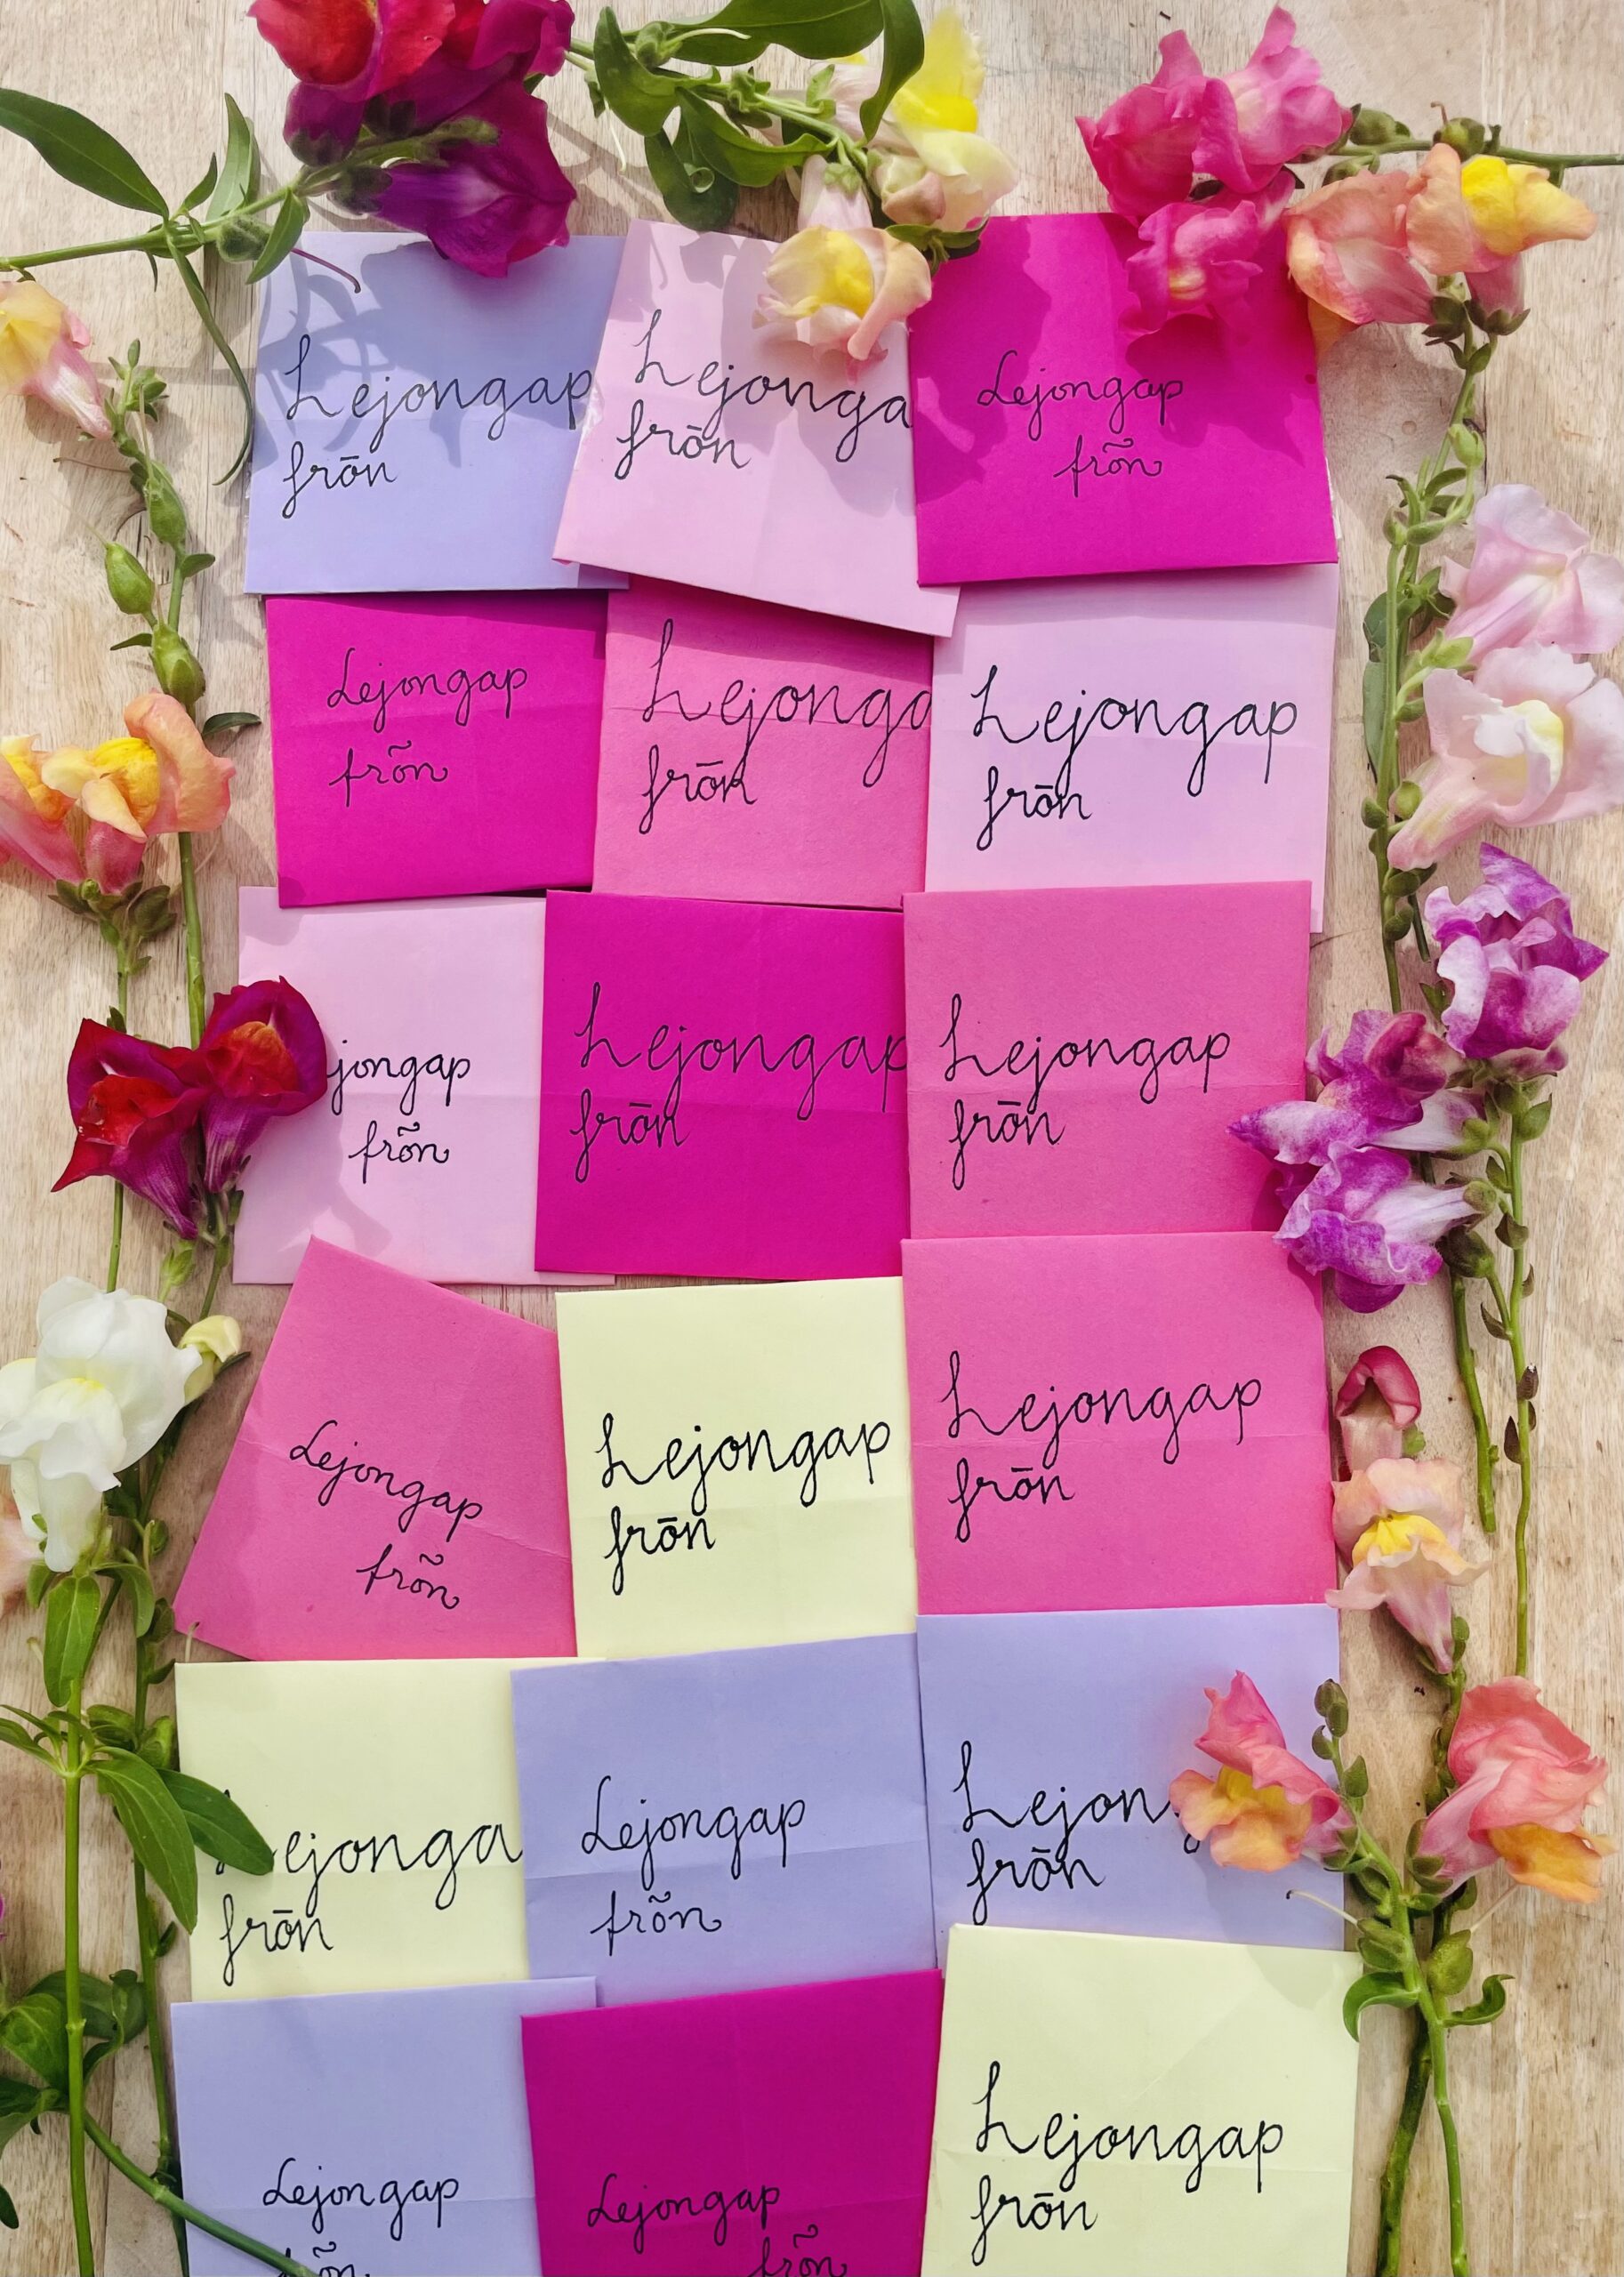 Lejongap
frön
Lejonga
frön
Lejongap
frön
Lejongap
frön
Lejonga
frön
Lejongap
frön
jongap
frön
Lejongap
frön
Lejongap
frön
Lejongap
frön
Lejongap
frön
Lejongap
frön
ejonga
frön
Lejongap
frön
Lejon
frön
Lejongap
Lejongap
frön
Lejongap
frön